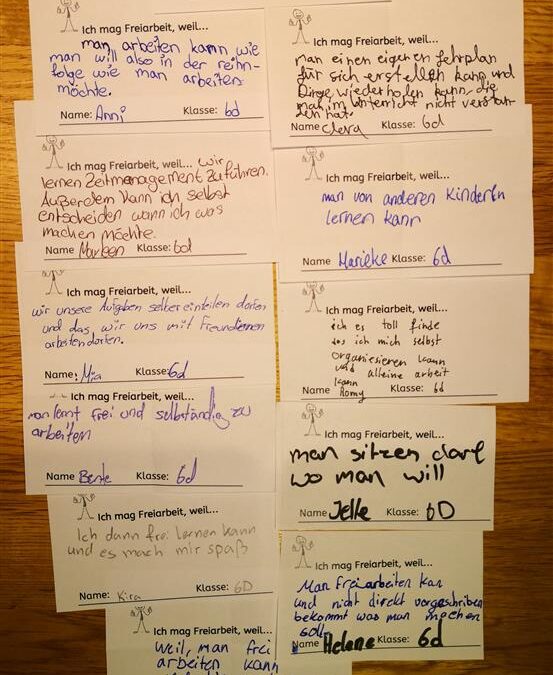 Ich mag Freiarbeit, weil...
man arbeiten kann wie
man will also in der reihn-
folge wie man arbeiten
möchte.
Name: Anni Klasse: 6d
Ich mag Freiarbeit, weil... wir
lernen Zeitmanagement zu führen.
Außerdem kann ich selbst
entscheiden wann ich was
machen möchte.
Name Marleen Klasse: 6d
Ich mag Freiarbeit, weil...
wir unsere Aufgaben selber einteilen dürfen
und das, wir uns mit Freundinnen
arbeiten dürfen.
Name: Mia Klasse: 6d
Ich mag Freiarbeit, weil...
man lernt frei und selbständig zu
arbeiten
Name Bente Klasse: 6d
Ich mag Freiarbeit, weil...
Ich dann frei lernen kann
und es mach mir spaß
Name: Kira Klasse: 6D
Ich mag Freiarbeit, weil...
weil, man frei
arbeiten kann
Ich mag Freiarbeit, weil...
man einen eigenen Lehrplan
für sich erstellen kann und
Dinge wiederholen kann, die
man im Unterricht nicht verstan-
den hat.
Name Clara Klasse: 6d
Ich mag Freiarbeit, weil...
man von anderen Kindern
lernen kann
Name Marieke Klasse: 6d
Ich mag Freiarbeit, weil...
ich es toll finde
das ich mich selbst
organiesieren kann
und alleine arbeit
kann
Name Romy Klasse: 6d
Ich mag Freiarbeit, weil...
man sitzen darf
wo man will
Name Jelle Klasse: 6D
Ich mag Freiarbeit, weil...
Man freiarbeiten kan
und nicht direkt vorgeschrieben
bekommt was man machen
soll.
Name Helene Klasse: 6d